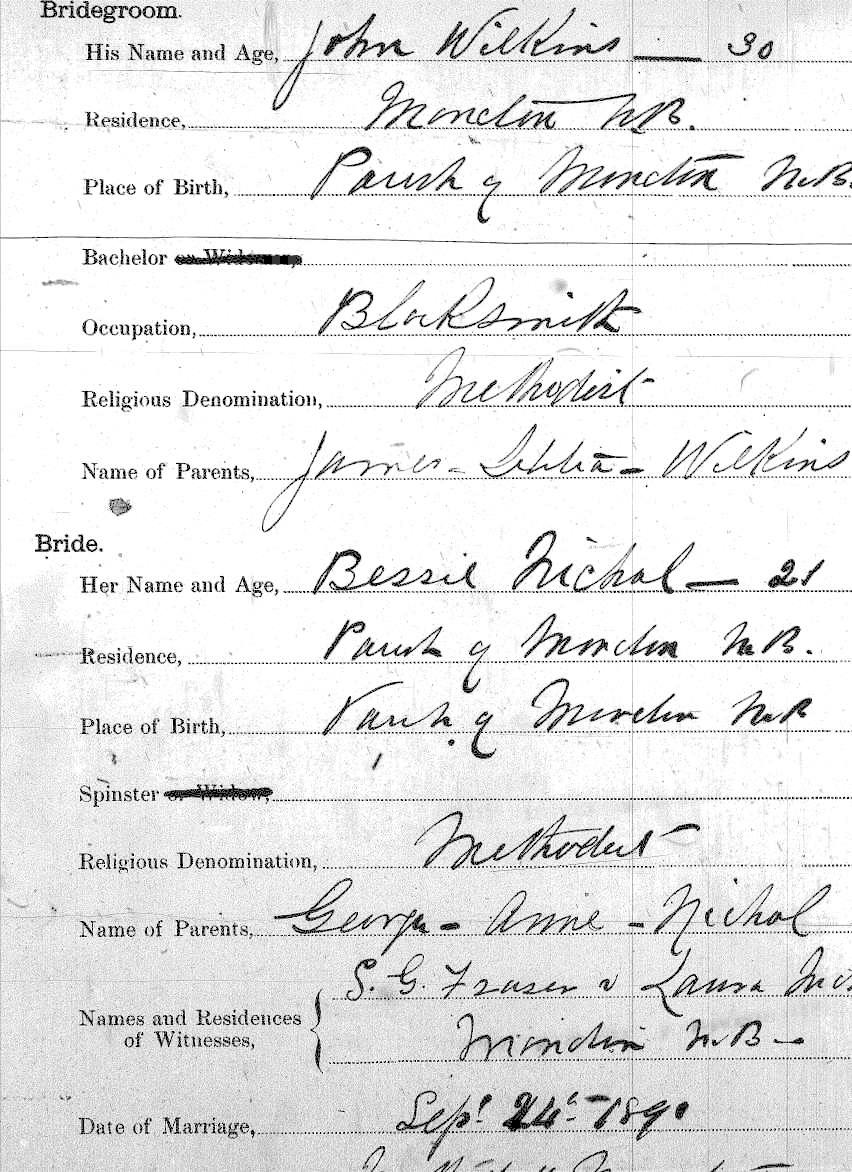 Bridegroom.
His Name and Age, John Wilkins — 30
Residence, Moncton N.B.
Place of Birth, Parish of Moncton N.B.
Bachelor or Widower,
Occupation, Blacksmith
Religious Denomination, Methodist
Name of Parents, James - - Wilkins
Bride.
Her Name and Age, Bessie Nichol — 21
Residence, Parish of Moncton N.B.
Place of Birth, Parish of Moncton N.B
Spinster or Widow,
Religious Denomination, Methodist
Name of Parents, George - Annie - Nichol
S. G. Fraser & Laura
Names and Residences
of Witnesses,
Moncton N.B -
Date of Marriage, Sept 24th 1890